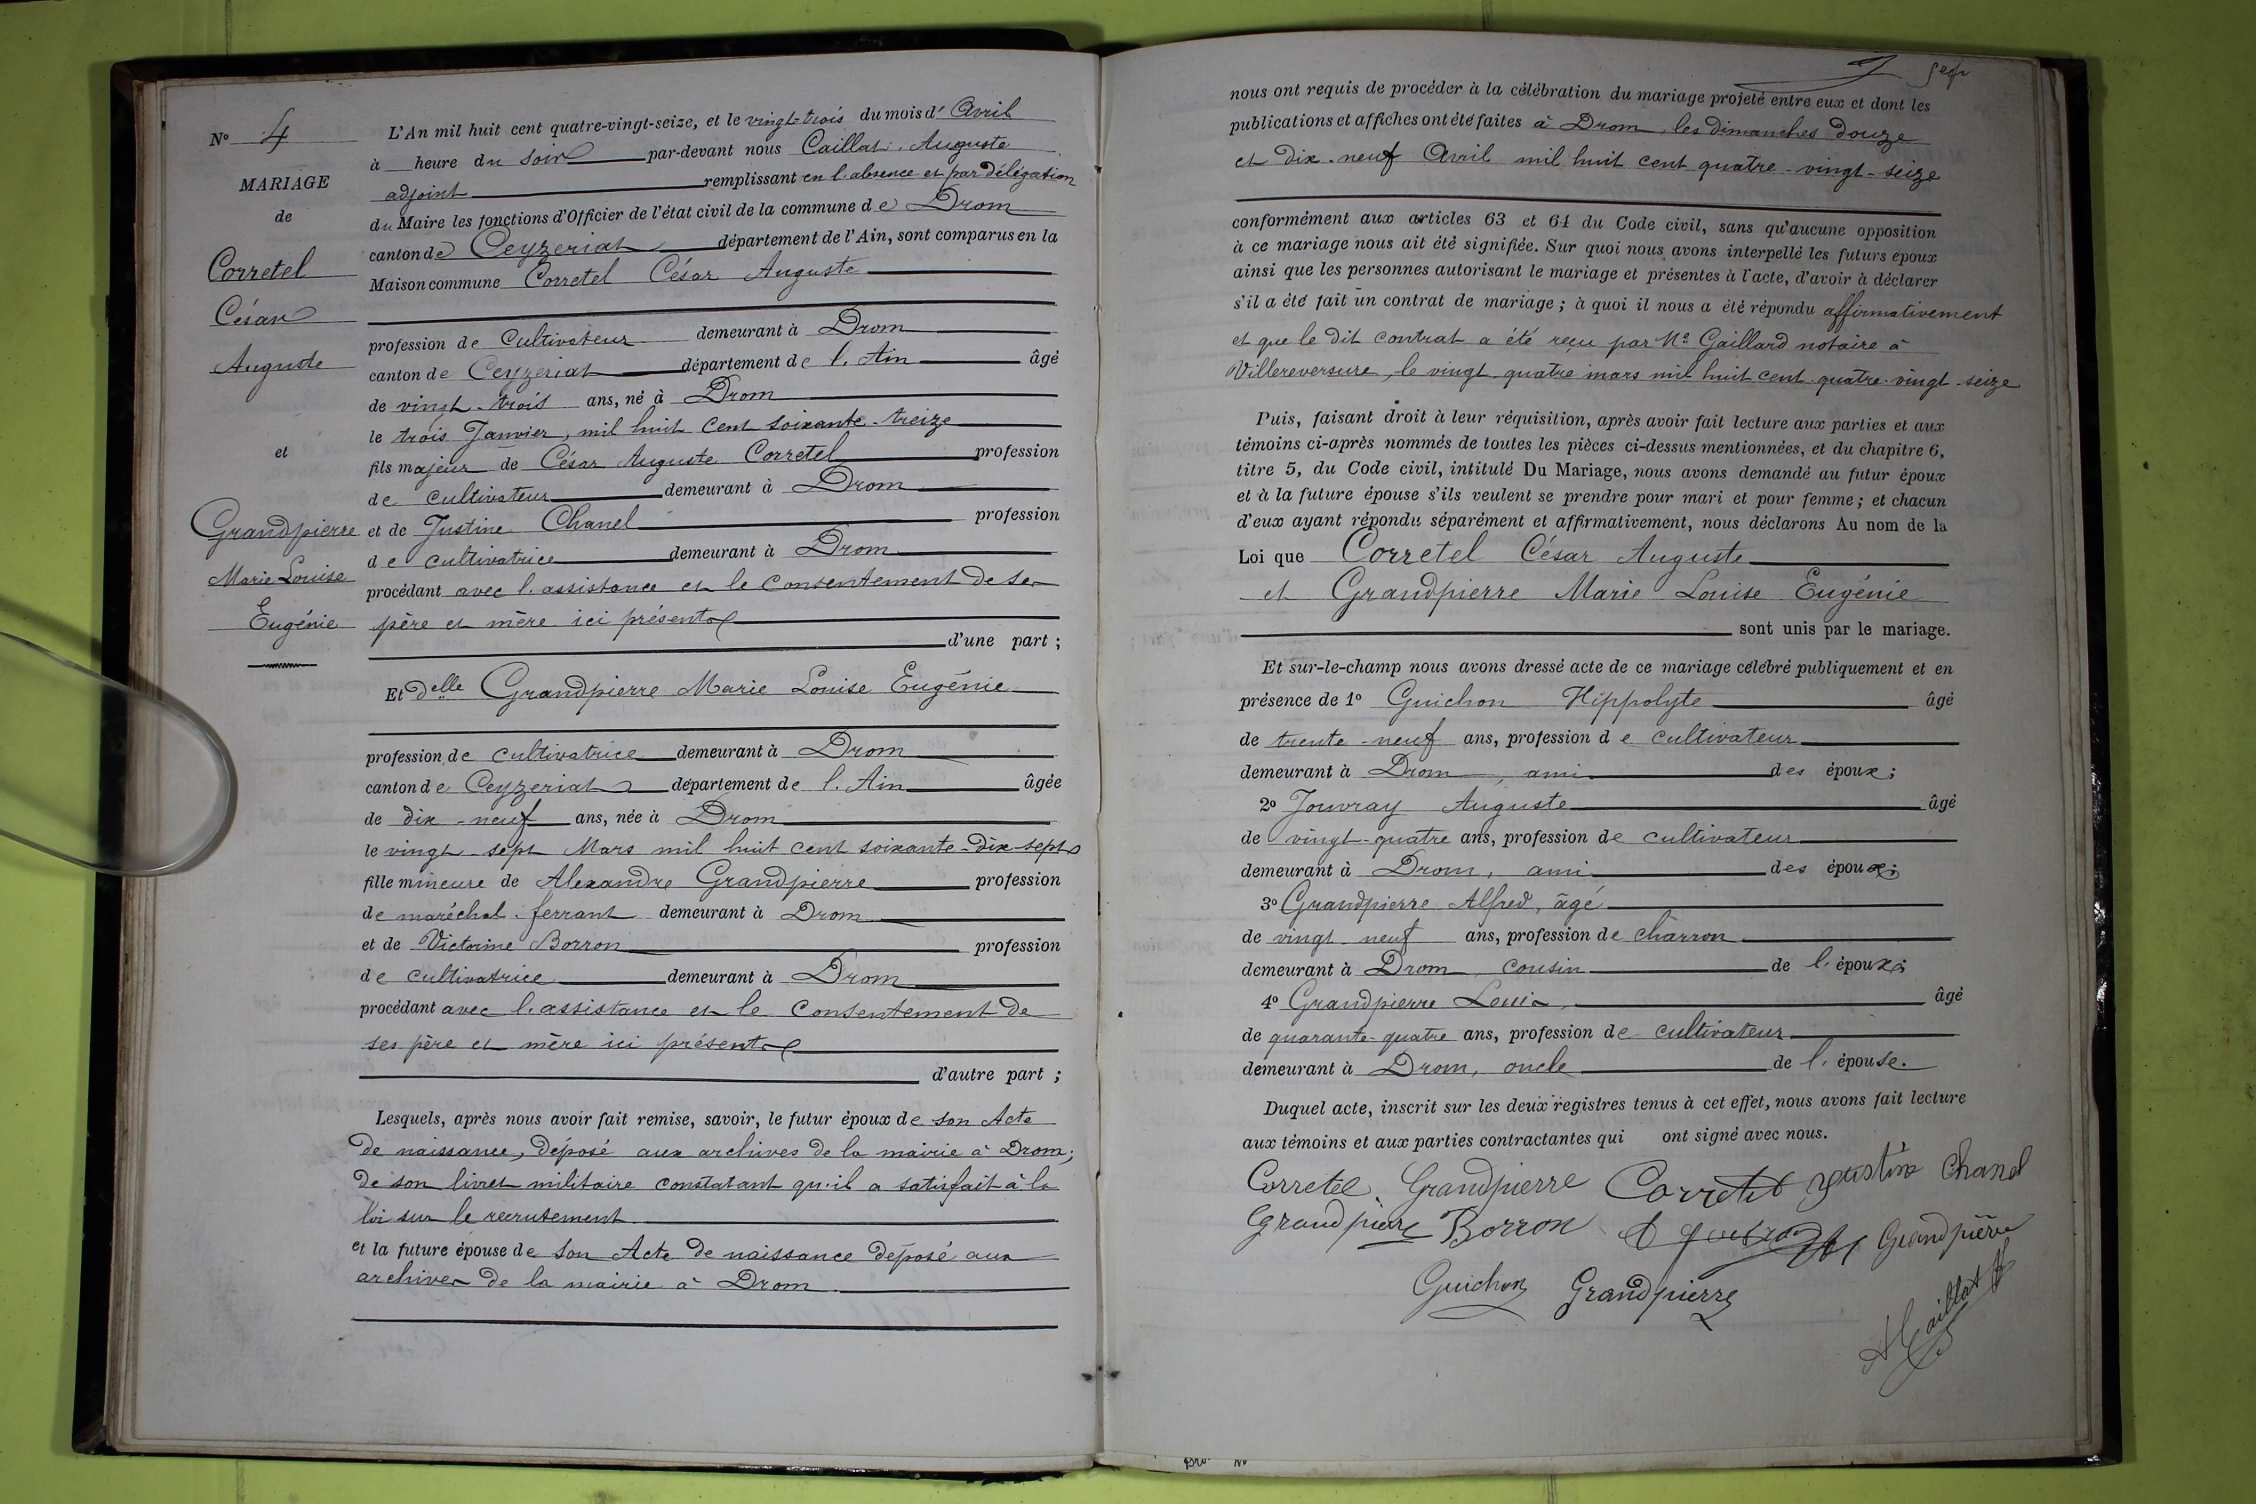 N° 4
MARIAGE
de
Corretel
César
Auguste
et
Grandpierre
Marie Louise
Eugénie
L'An mil huit cent quatre-vingt-seize, et le vingt-trois du mois d'Avril
à heure du soir par-devant nous Caillat Auguste
adjoint remplissant en l'absence et par délégation
du Maire les fonctions d'Officier de l'état civil de la commune de Drom
canton de Ceyzeriat département de l'Ain, sont comparus en la
Maison commune Corretel César Auguste
profession de Cultivateur demeurant à Drom
canton de Ceyzeriat département de l'Ain âgé
de vingt-trois ans, né à Drom
le trois Janvier, mil huit cent soixante-treize
fils majeur de César Auguste Corretel profession
de cultivateur demeurant à Drom
et de Justine Chanel profession
de cultivatrice demeurant à Drom
procédant avec l'assistance et le consentement de ses
père et mère ici présents
d'une part ;
Et Delle Grandpierre Marie Louise Eugénie
profession de cultivatrice demeurant à Drom
canton de Ceyzeriat département de l'Ain âgée
de dix-neuf ans, née à Drom
le vingt-sept Mars mil huit cent soixante-dix-sept
fille mineure de Alexandre Grandpierre profession
de maréchal-ferrant demeurant à Drom
et de Victorine Borron profession
de cultivatrice demeurant à Drom
procédant avec l'assistance et le consentement de
ses père et mère ici présents
d'autre part ;
Lesquels, après nous avoir fait remise, savoir, le futur époux de son Acte
de naissance, déposé aux archives de la mairie à Drom;
de son livret militaire constatant qu'il a satisfait à la
loi sur le recrutement
et la future épouse de son Acte de naissance déposé aux
archives de la mairie à Drom
nous ont requis de procéder à la célébration du mariage projeté entre eux et dont les
publications et affiches ont été faites à Drom, les dimanches douze
et dix-neuf Avril mil huit cent quatre-vingt-seize
conformément aux articles 63 et 64 du Code civil, sans qu'aucune opposition
à ce mariage nous ait été signifiée. Sur quoi nous avons interpellé les futurs époux
ainsi que les personnes autorisant le mariage et présentes à l'acte, d'avoir à déclarer
s'il a été fait un contrat de mariage ; à quoi il nous a été répondu affirmativement
et que le dit contrat a été reçu par Me Gaillard notaire à
Villereversure, le vingt-quatre mars mil huit cent quatre-vingt-seize
Puis, faisant droit à leur réquisition, après avoir fait lecture aux parties et aux
témoins ci-après nommés de toutes les pièces ci-dessus mentionnées, et du chapitre 6,
titre 5, du Code civil, intitulé Du Mariage, nous avons demandé au futur époux
et à la future épouse s'ils veulent se prendre pour mari et pour femme ; et chacun
d'eux ayant répondu séparément et affirmativement, nous déclarons Au nom de la
Loi que Corretel César Auguste
et Grandpierre Marie Louise Eugénie
sont unis par le mariage.
Et sur-le-champ nous avons dressé acte de ce mariage célébré publiquement et en
présence de 1° Guichon Hippolyte âgé
de trente-neuf ans, profession de cultivateur
demeurant à Drom, ami des époux;
2° Jouvray Auguste âgé
de vingt-quatre ans, profession de cultivateur
demeurant à Drom, ami des époux;
3° Grandpierre Alfred, âgé
de vingt-neuf ans, profession de charron
demeurant à Drom, cousin de l'époux;
4° Grandpierre Louis, âgé
de quarante-quatre ans, profession de cultivateur
demeurant à Drom, oncle de l'épouse.
Duquel acte, inscrit sur les deux registres tenus à cet effet, nous avons fait lecture
aux témoins et aux parties contractantes qui ont signé avec nous.
Corretel Grandpierre Corretel Justine Chanel
Grandpierre Borron Grandpierre
Guichon Grandpierre
ACaillat